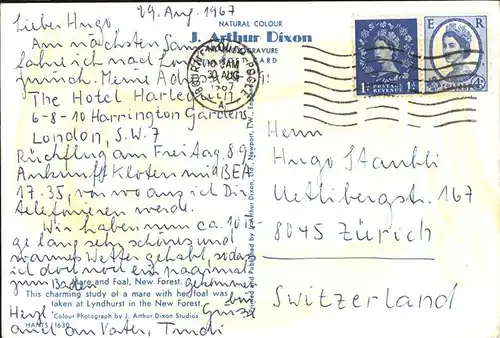 29. Aug. 1967
Lieber Hugo,
Am nächsten Sam
fahre ich nach Lon
zurück. Meine Ad
The Hotel Harle
6-8-10 Harrington Gardens,
London, S.W.7
Rückflug am Freitag 8.9.
Ankunft Kloten mit BEA
17.35, von wo aus ich Dir
telefonieren werde.
Wir haben nun ca. 10
ge lang sehr schönes und
warmes Wetter gehabt, sodass
ich doch noch ein paarmal
zum Baden gekommen
bin
Herzl. Grüsse
auch an Vater, Trudi
NATURAL COLOUR
J. Arthur Dixon
PHOTOGRAVURE
POST CARD
10 AM
30 AUG
1967
A
1D POSTAGE REVENUE 1D
E R
4D
Herrn
Hugo Staubli
Uetlibergstr. 167
8045 Zürich
Switzerland
Printed and Published by J. Arthur Dixon Ltd., Newport,
Mare and Foal, New Forest.
This charming study of a mare with her foal was
taken at Lyndhurst in the New Forest.
Colour Photograph by J. Arthur Dixon Studios.
HANTS/1630